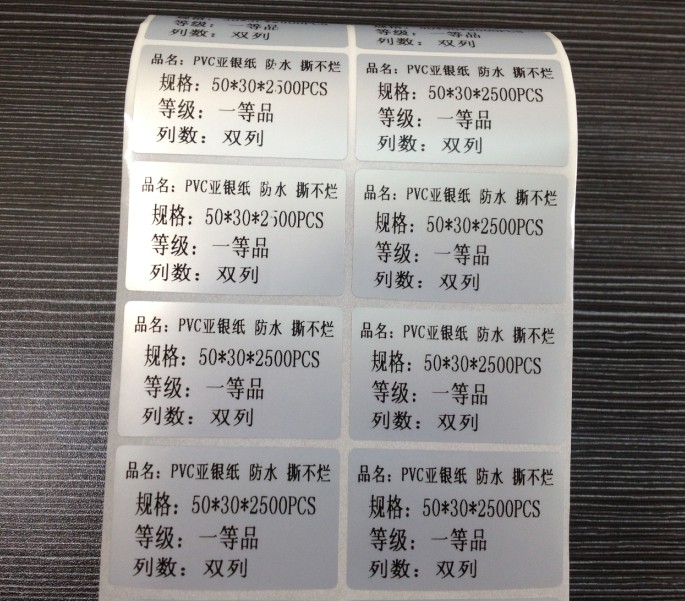 等级：一等品
双列
等级：一等品
列数：双列
品名：PVC亚银纸 防水 撕不烂
规格：50*30*2500PCS
等级：一等品
列数：双列
品名：PVC亚银纸 防水 撕不烂
规格：50*30*2500PCS
等级：一等品
列数：双列
品名：PVC亚银纸 防水 撕不烂
规格：50*30*2500PCS
等级：一等品
列数：双列
品名：PVC亚银纸 防水 撕不烂
规格：50*30*2500PCS
等级：一等品
列数：双列
品名：PVC亚银纸 防水 撕不烂
规格：50*30*2500PCS
等级：一等品
列数：双列
品名：PVC亚银纸 防水 撕不烂
规格：50*30*2500PCS
等级：一等品
列数：双列
品名：PVC亚银纸 防水 撕不烂
规格：50*30*2500PCS
等级：一等品
列数：双列
品名：PVC亚银纸 防水 撕不烂
规格：50*30*2500PCS
等级：一等品
列数：双列